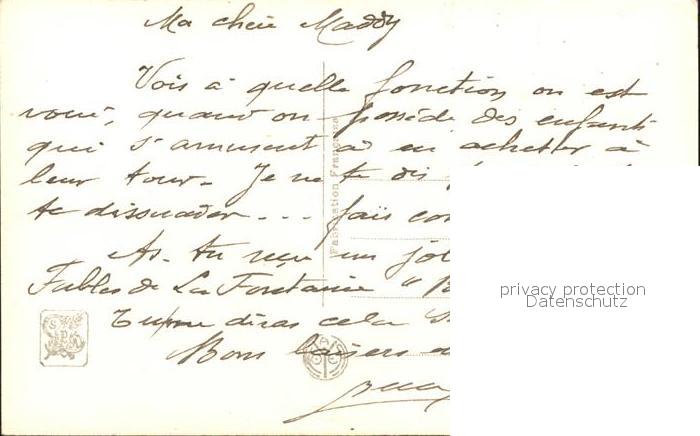 Ma chère Maddy
Vois à quelle fonction on est
voué, quand on possède des enfants
qui s'amusent à en acheter à
leur tour. Je ne te dis
te dissuader... fais
As-tu reçu un
Fables de La Fontaine "
Tu me diras cela
Bons baisers
Fabrication Française
SPA
privacy protection
Datenschutz